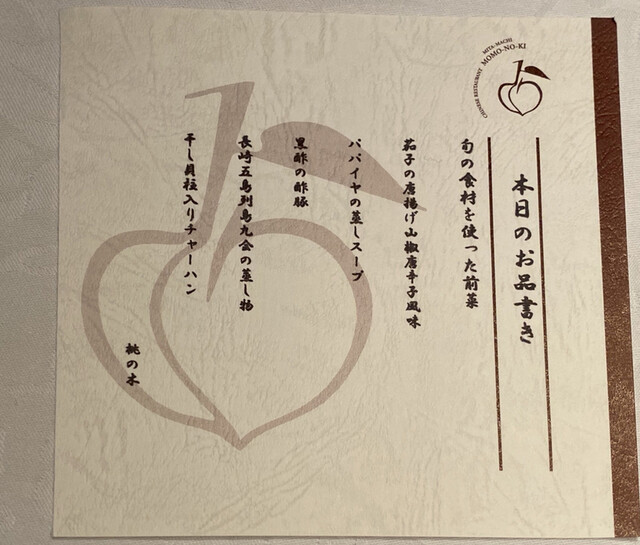 CHINESE RESTAURANT
MITA-MACHI
MOMO-NO-KI
本日のお品書き
旬の食材を使った前菜
茄子の唐揚げ山椒唐辛子風味
パパイヤの蒸しスープ
黒酢の酢豚
長崎五島列島九会の蒸し物
干し貝柱入りチャーハン
桃の木